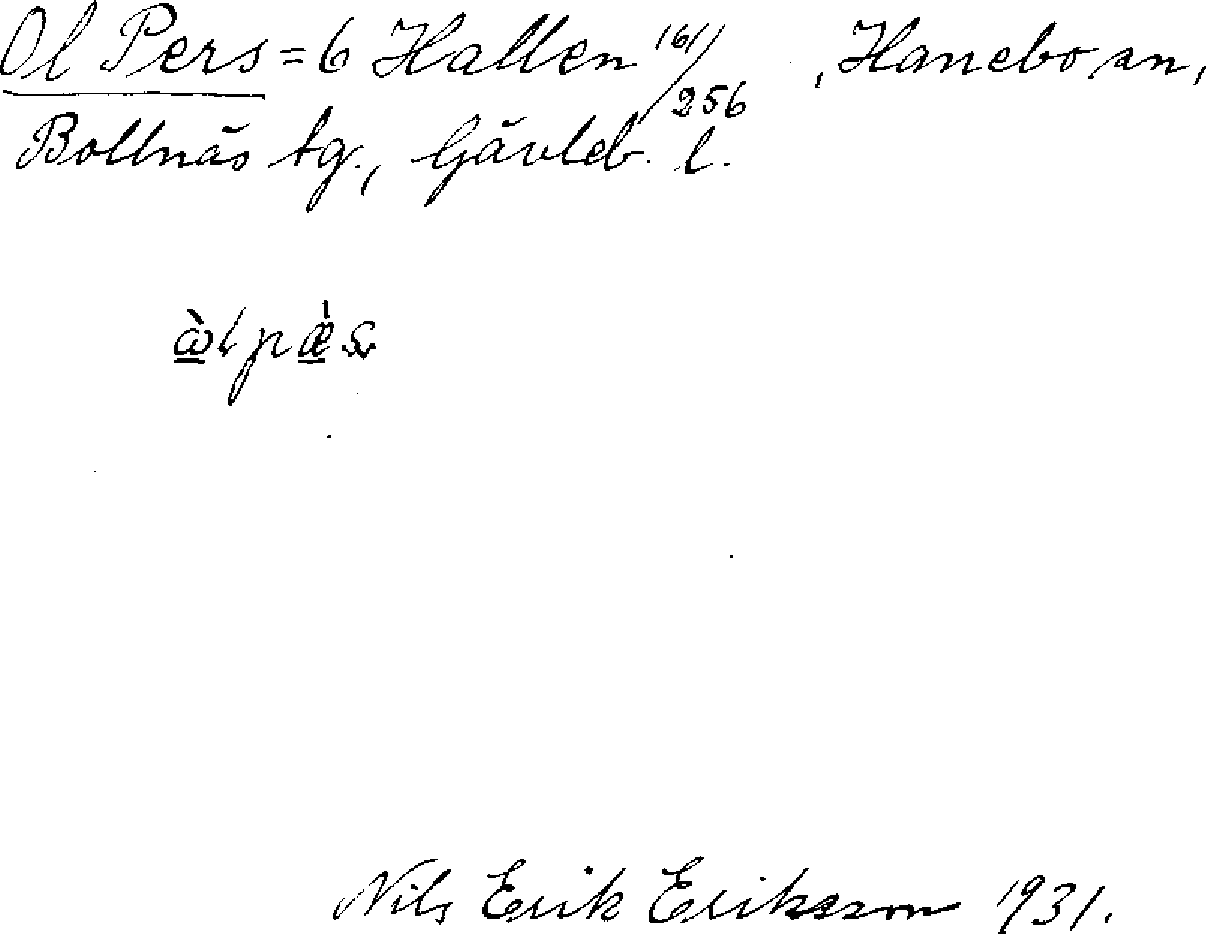 Ol Pers = 6 Hallen 161/256, Hanebo sn,
Bollnäs tg., Gävleb. l.
Nils Erik Eriksson 1931.